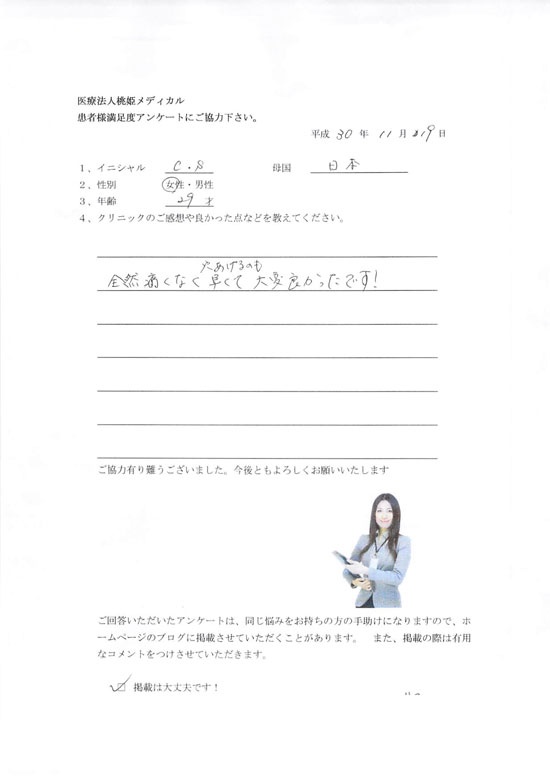 医療法人桃姫メディカル
患者様満足度アンケートにご協力下さい。
平成 30 年 11 月 19 日
1、イニシャル C.S 母国 日本
2、性別 女性・男性
3、年齢 29 才
4、クリニックのご感想や良かった点などを教えてください。
穴あけるのも
全然痛くなく 早くて 大変良かったです!
ご協力有り難うございました。今後ともよろしくお願いいたします
ご回答いただいたアンケートは、同じ悩みをお持ちの方の手助けになりますので、ホ
ームページのブログに掲載させていただくことがあります。 また、掲載の際は有用
なコメントをつけさせていただきます。
☑ 掲載は大丈夫です!